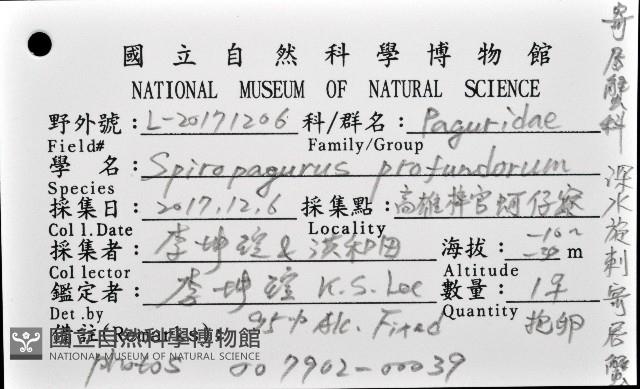 國立自然科學博物館
NATIONAL MUSEUM OF NATURAL SCIENCE
野外號：L-20171206 科/群名：Paguridae
Field# Family/Group
學 名：Spiropagurus profundorum
Species
採集日：2017.12.6 採集點：高雄梓官蚵仔寮
Coll.Date Locality
採集者：李坤瑄 & 洪和田 海拔：-10~-30 m
Collector Altitude
鑑定者：李坤瑄 K.S. Lee 數量：1♀
Det.by Quantity 抱卵
備註(Remarks): 95% Alc. Fixed
photos 007902-00039
寄居蟹科 深水旋刺寄居蟹
國立自然科學博物館
NATIONAL MUSEUM OF NATURAL SCIENCE